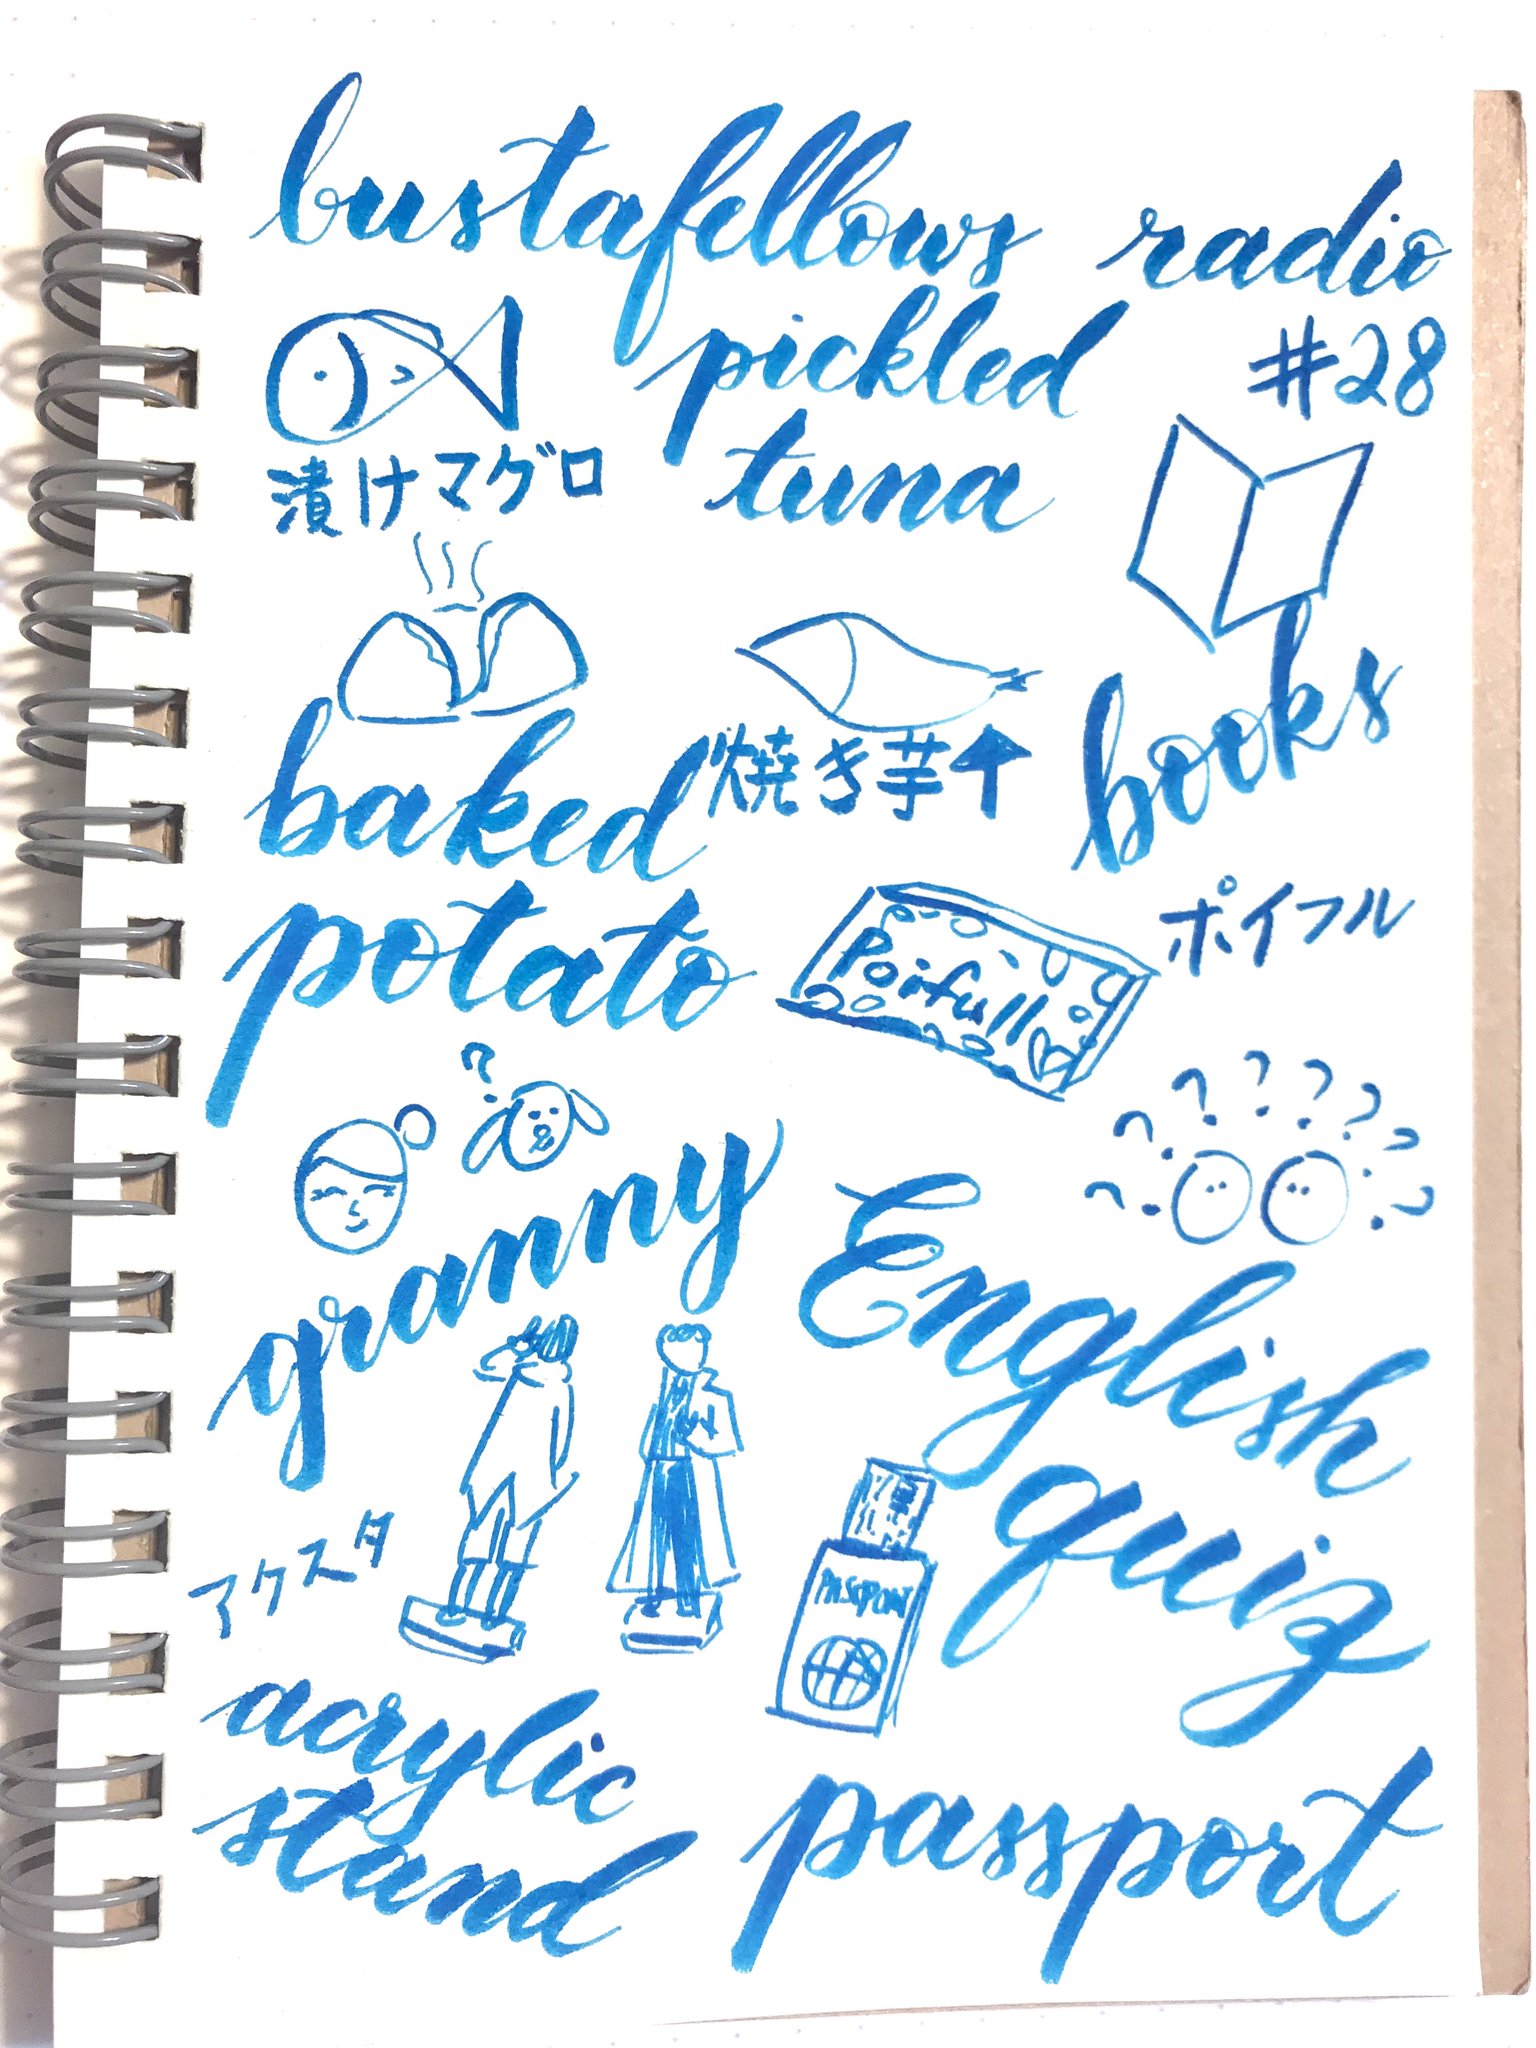 bustafellows radio
#28
pickled
tuna
漬けマグロ
books
焼き芋
baked
potato
ポイフル
Poifull
?
? ? ? ? ? ? ? ?
granny
English
quiz
アクスタ
acrylic
stand
PASSPORT
passport